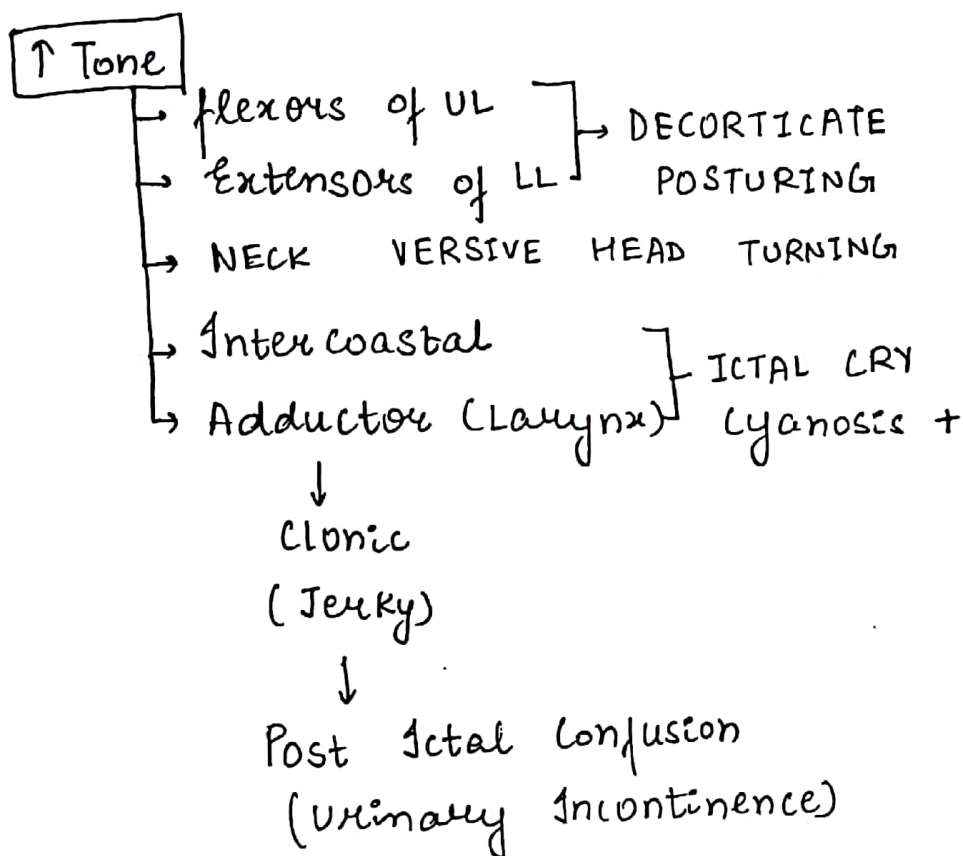 ↑ Tone
→ flexors of UL
→ Extensors of LL
→ DECORTICATE
POSTURING
→ NECK VERSIVE HEAD TURNING
→ Inter coastal
→ Adductor (Larynx)
ICTAL CRY
Cyanosis +
↓
Clonic
(Jerky)
↓
Post Ictal Confusion
(Urinary Incontinence)